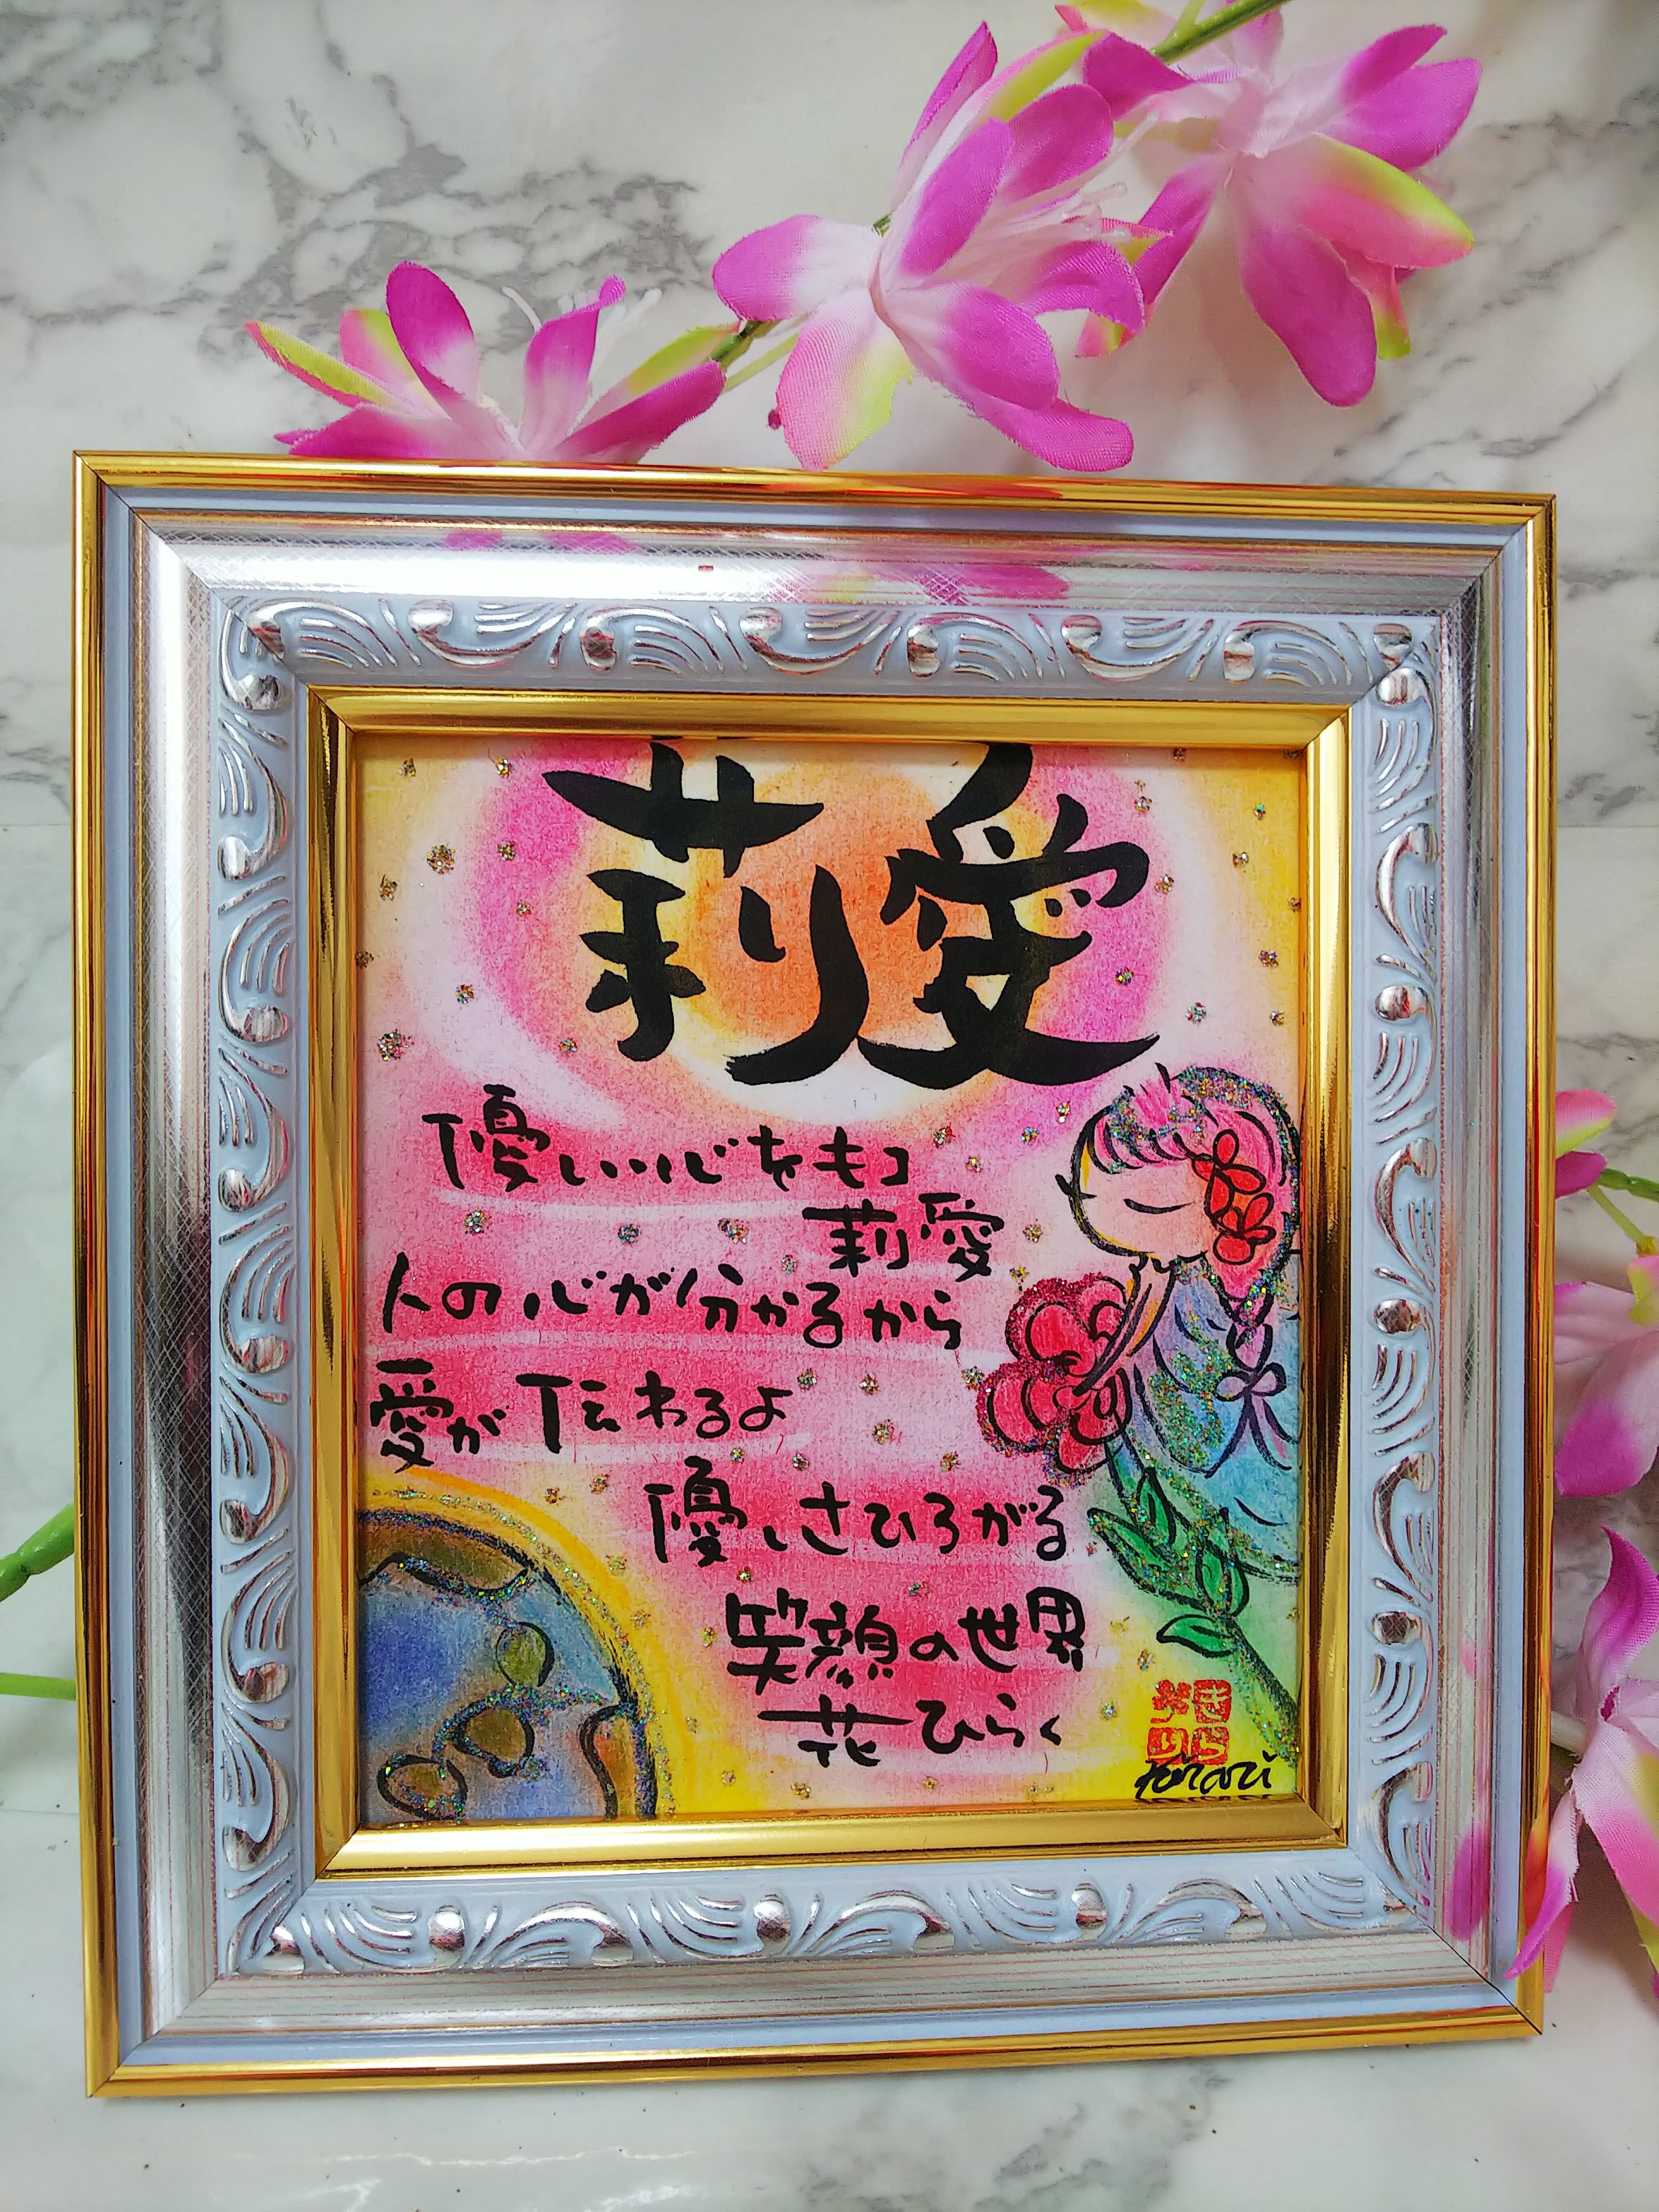 莉愛
優しい心をもつ
莉愛
人の心が分かるから
愛が伝わるよ
優しさひろがる
笑顔の世界
花ひらく
kirari